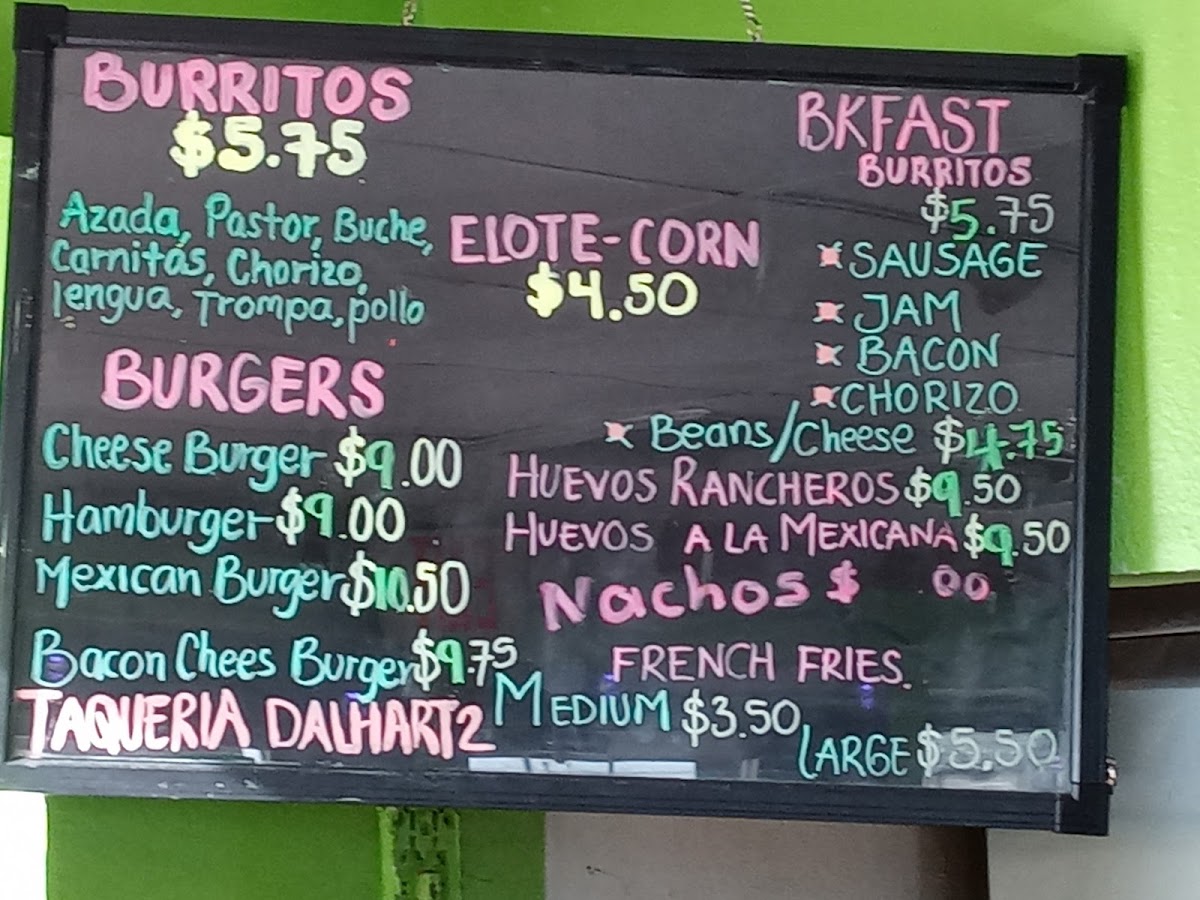 BURRITOS
$5.75
Azada, Pastor, Buche,
Carnitas, Chorizo,
lengua, Trompa, pollo
BURGERS
Cheese Burger $9.00
Hamburger $9.00
Mexican Burger $10.50
Bacon Chees Burger $9.75
TAQUERIA DALHART2
ELOTE-CORN
$4.50
BKFAST
BURRITOS
$5.75
x SAUSAGE
x JAM
x BACON
x CHORIZO
x Beans/Cheese $4.75
HUEVOS RANCHEROS $9.50
HUEVOS A LA MEXICANA $9.50
Nachos $ .00
FRENCH FRIES.
MEDIUM $3.50
LARGE $5.50